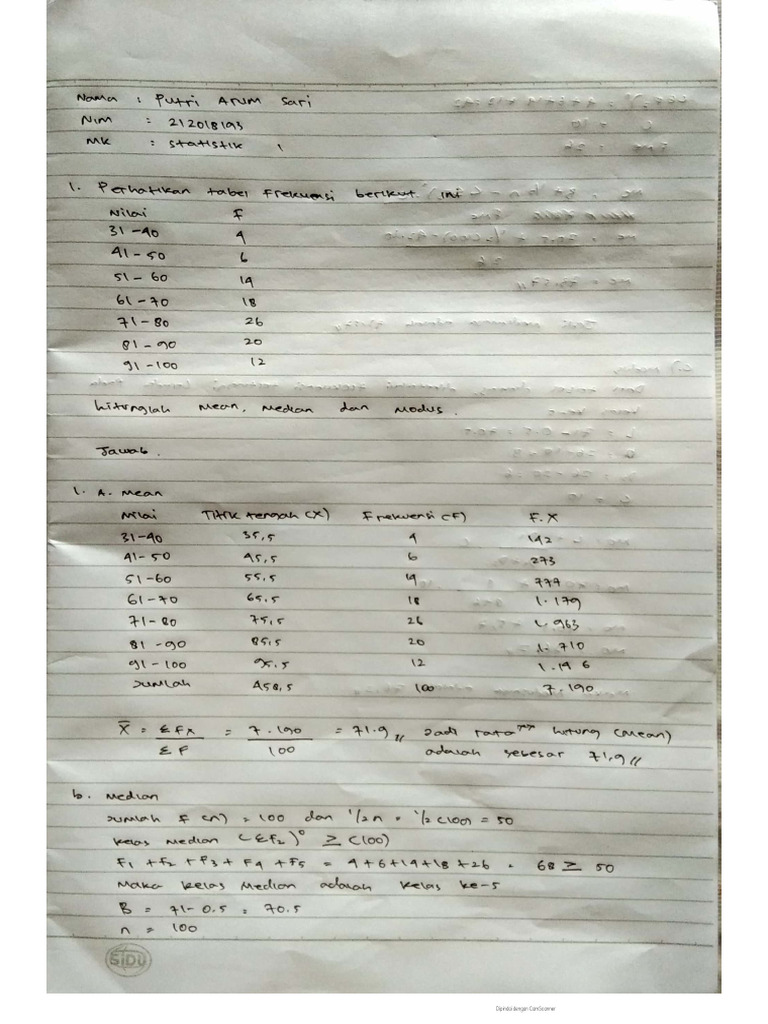 Nama : Putri Arum Sari
Nim : 212018193
MK : Statistik 1
1. Perhatikan tabel Frekuensi berikut ini
Nilai F
31-40 4
41-50 6
51-60 14
61-70 18
71-80 26
81-90 20
91-100 12
hitunglah Mean, Median dan Modus.
Jawab.
1. A. Mean
Nilai Titik tengah (X) Frekuensi (F) F.X
31-40 35,5 4 142
41-50 45,5 6 273
51-60 55,5 14 777
61-70 65,5 18 1.179
71-80 75,5 26 1.963
81-90 85,5 20 1.710
91-100 95,5 12 1.146
Jumlah 458,5 100 7.190
X̄ = ΣFx / ΣF = 7.190 / 100 = 71.9 // Jadi rata" hitung (Mean)
adalah sebesar 71,9 //
b. Median
Jumlah F (n) = 100 dan 1/2 n = 1/2 (100) = 50
Kelas Median (ΣF2)⁰ ≥ (100)
F1 + F2 + F3 + F4 + F5 = 4+6+14+18+26 = 68 ≥ 50
Maka kelas Median adalah kelas ke-5
B = 71-0.5 = 70.5
n = 100
SIDU
Dipindai dengan CamScanner